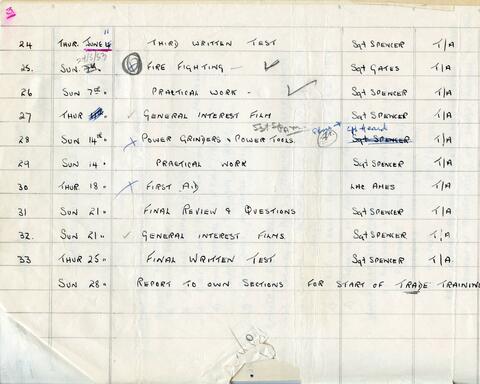 24 THUR. JUNE 4" THIRD WRITTEN TEST Sgt SPENCER T/A
25. SUN FIRE FIGHTING - Sgt GATES T/A
26 SUN 7TH. PRACTICAL WORK - Sgt SPENCER T/A
27 THUR GENERAL INTEREST FILM Sgt SPENCER T/A
28 SUN 14TH. POWER GRINDERS & POWER TOOLS. Sgt SPENCER T/A
29 SUN 14 " PRACTICAL WORK Sgt SPENCER T/A
30 THUR 18 " FIRST AID LAC AMES T/A
31 SUN 21 " FINAL REVIEW & QUESTIONS Sgt SPENCER T/A
32. SUN 21 " GENERAL INTEREST FILMS. Sgt SPENCER T/A.
33 THUR 25 " FINAL WRITTEN TEST Sgt SPENCER T/A
SUN 28 " REPORT TO OWN SECTIONS FOR START OF TRADE TRAINING